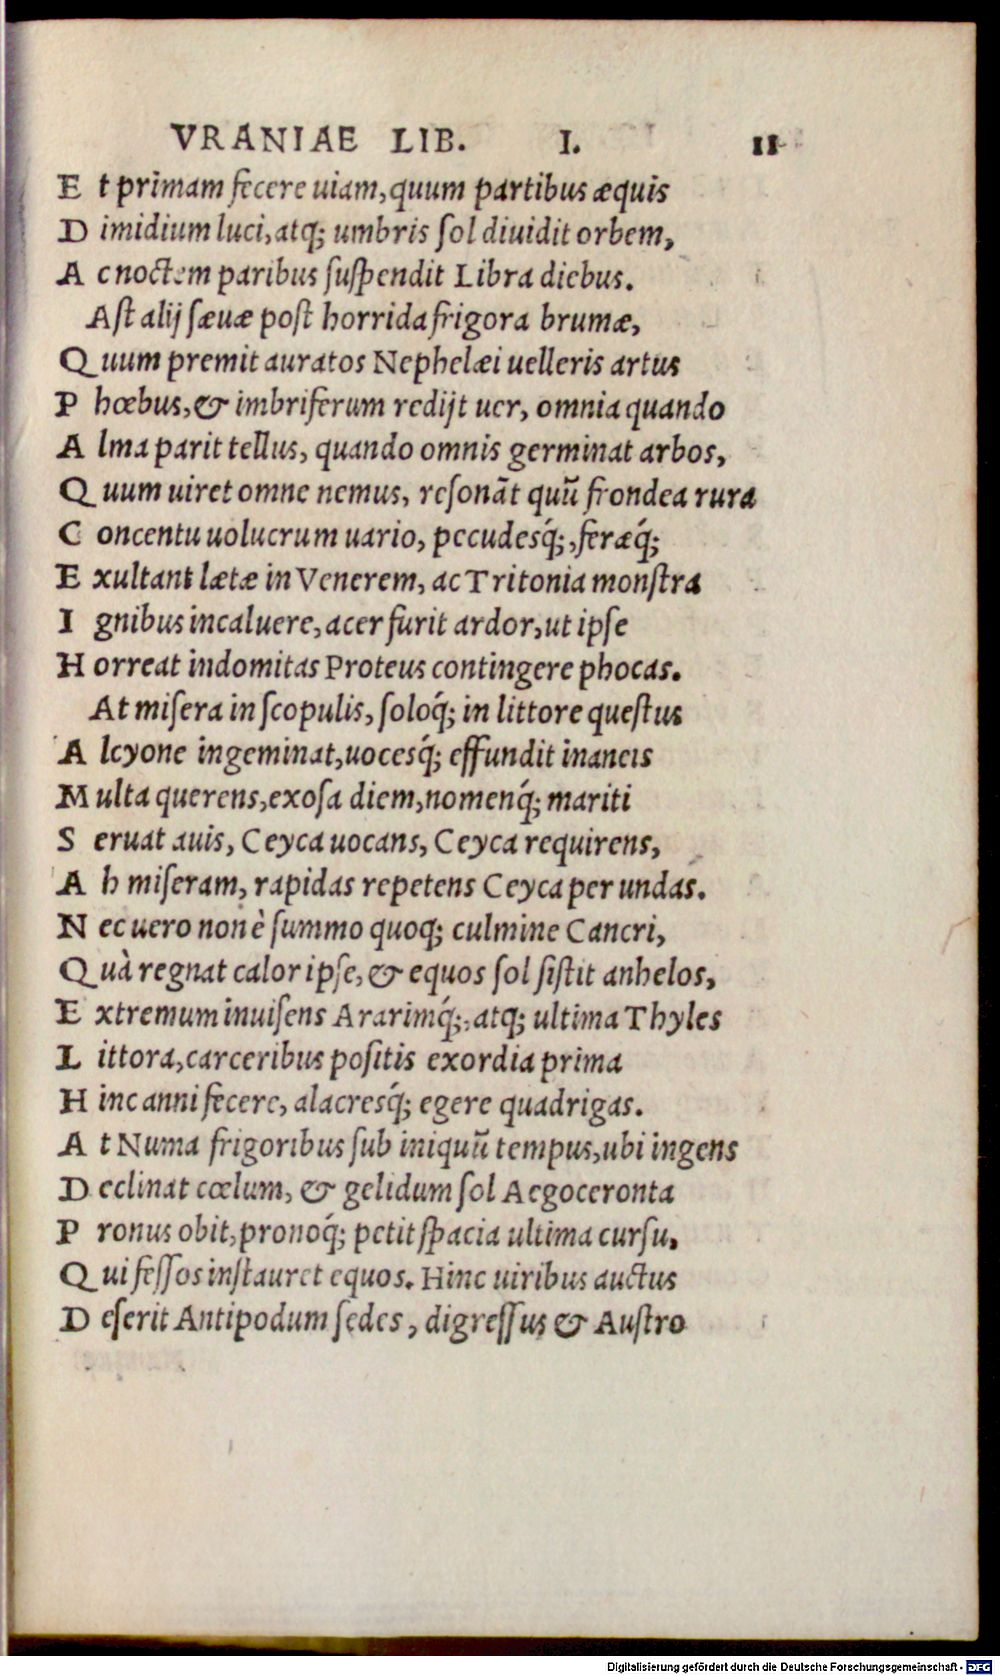 VRANIAE LIB. I. 11
E t primam fecere uiam, quum partibus æquis
D imidium luci, atq; umbris sol diuidit orbem,
A c noctem paribus suspendit Libra diebus.
Ast alij sæuæ post horrida frigora brumæ,
Q uum premit auratos Nephelæi uelleris artus
P hœbus, & imbriferum redijt uer, omnia quando
A lma parit tellus, quando omnis germinat arbos,
Q uum uiret omne nemus, resonãt quũ frondea rura
C oncentu uolucrum uario, pecudesq́;, feræq́;
E xultant lætæ in Venerem, ac Tritonia monstra
I gnibus incaluere, acer furit ardor, ut ipse
H orreat indomitas Proteus contingere phocas.
At misera in scopulis, soloq́; in littore questus
A lcyone ingeminat, uocesq́; effundit inaneis
M ulta querens, exosa diem, nomenq́; mariti
S eruat auis, Ceyca uocans, Ceyca requirens,
A h miseram, rapidas repetens Ceyca per undas.
N ec uero non è summo quoq; culmine Cancri,
Q uà regnat calor ipse, & equos sol sistit anhelos,
E xtremum inuisens Ararimq́;, atq; ultima Thyles
L ittora, carceribus positis exordia prima
H inc anni fecere, alacresq́; egere quadrigas.
A t Numa frigoribus sub iniquũ tempus, ubi ingens
D eclinat cœlum, & gelidum sol Aegoceronta
P ronus obit, pronoq́; petit spacia ultima cursu,
Q ui fessos instauret equos. Hinc uiribus auctus
D eserit Antipodum sedes, digressus & Austro
Digitalisierung gefördert durch die Deutsche Forschungsgemeinschaft - DFG